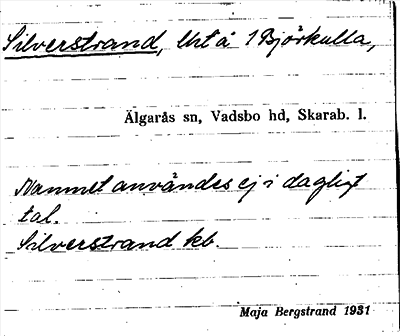 Silverstrand, lht å 1 Björkulla,
Älgarås sn, Vadsbo hd, Skarab. l.
Namnet användes ej i dagligt
tal.
Silverstrand kb.
Maja Bergstrand 1931